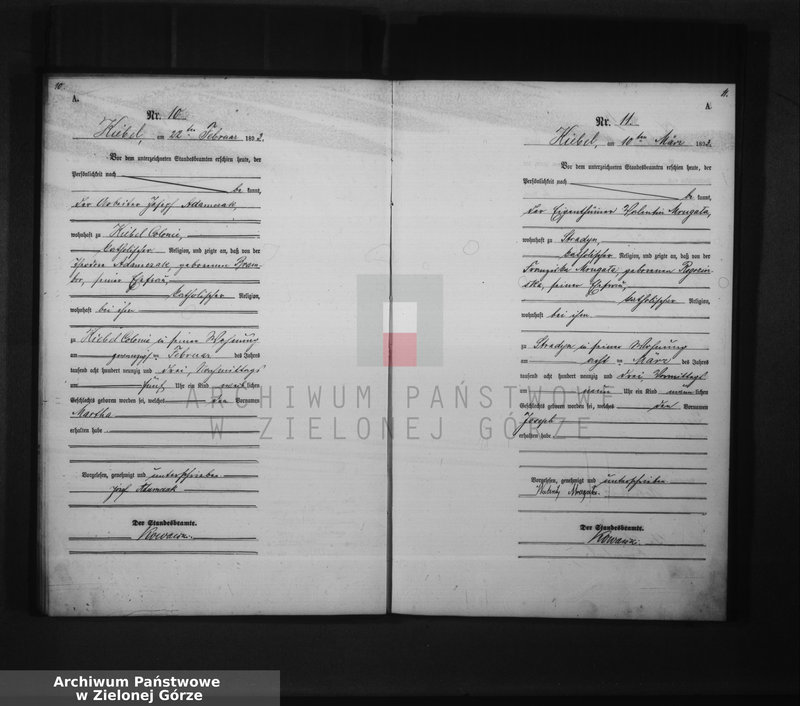 10.
A.
Nr. 10
Kiebel, am 22ten Februar 1893.
Vor dem unterzeichneten Standesbeamten erschien heute, der
Persönlichkeit nach
be kannt,
der Arbeiter Josef Adamczak,
wohnhaft zu Kiebel Colonie,
katholischer Religion, und zeigte an, daß von der
Adamczak, geborenen
seiner Ehefrau,
katholischer Religion,
wohnhaft bei ihm
zu Kiebel Colonie in seiner Wohnung
am zwanzigsten Februar des Jahres
tausend acht hundert neunzig und drei, Nachmittags
um fünf Uhr ein Kind weiblichen
Geschlechts geboren worden sei, welches den Vornamen
Martha
erhalten habe.
Vorgelesen, genehmigt und unterschrieben
Josef Adamczak
Der Standesbeamte.
11.
A.
Nr. 11.
Kiebel, am 10ten März 1893.
Vor dem unterzeichneten Standesbeamten erschien heute, der
Persönlichkeit nach
be kannt,
der Eigenthümer Valentin
wohnhaft zu Stradyn,
katholischer Religion, und zeigte an, daß von der
Franziska geborenen
seiner Ehefrau,
katholischer Religion,
wohnhaft bei ihm
zu Stradyn in seiner Wohnung
am acht März des Jahres
tausend acht hundert neunzig und drei, Vormittags
um neun Uhr ein Kind männlichen
Geschlechts geboren worden sei, welches den Vornamen
Joseph
erhalten habe
Vorgelesen, genehmigt und unterschrieben
Der Standesbeamte.
ARCHIWUM PAŃSTWOWE
W ZIELONEJ GÓRZE
Archiwum Państwowe
w Zielonej Górze